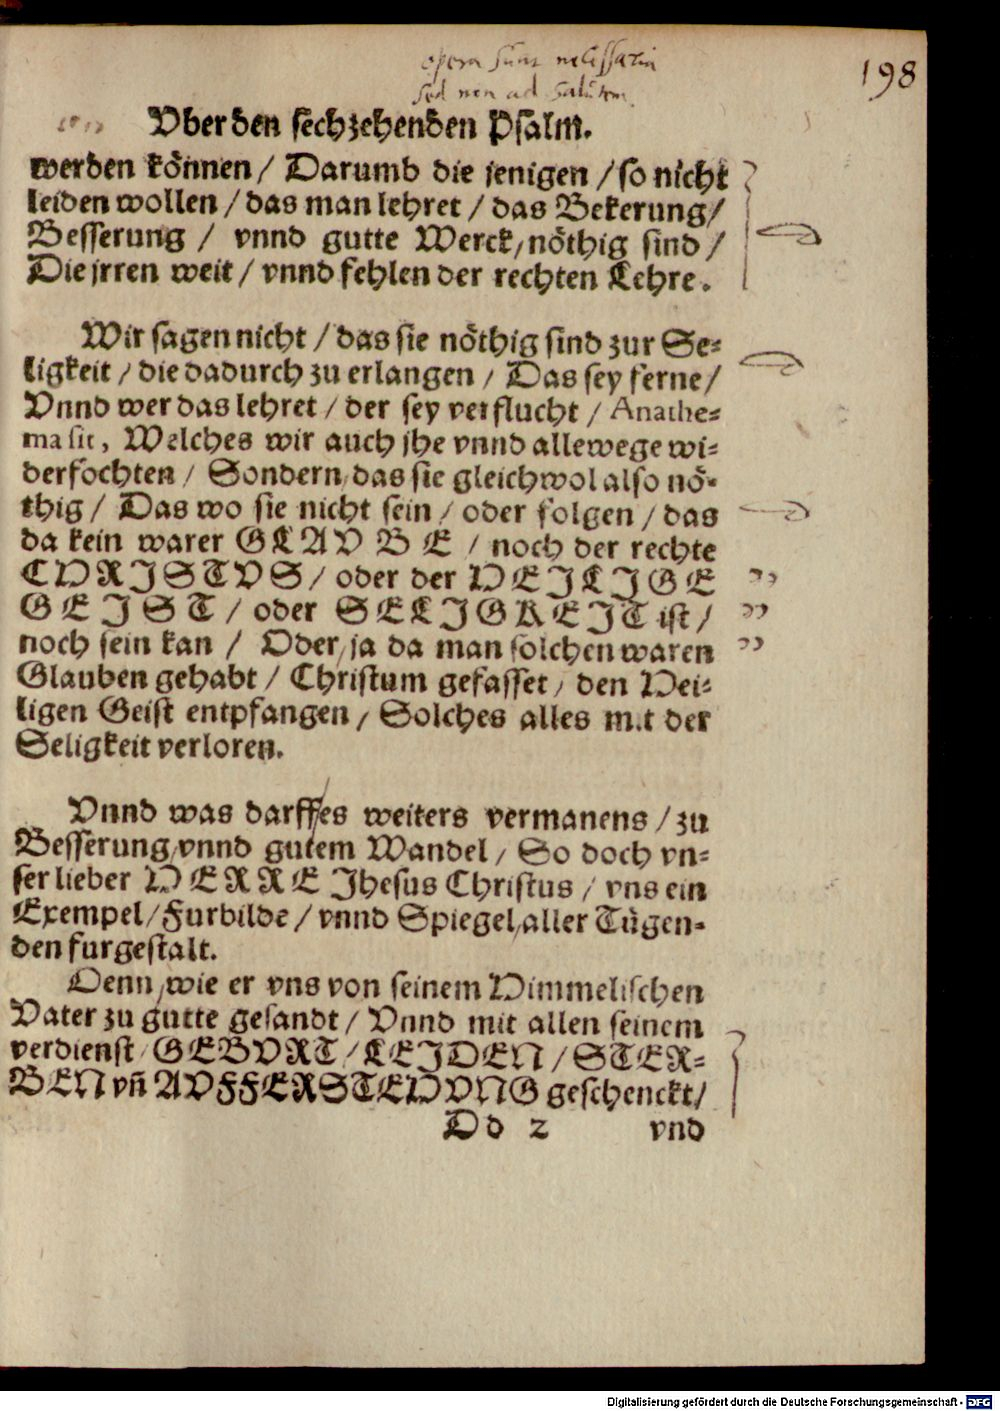 opera sunt necessaria
sed non ad salutem
198
Vber den sechzehenden Psalm.
werden können / Darumb die jenigen / so nicht
leiden wollen / das man lehret / das Bekerung /
Besserung / vnnd gutte Werck / nöthig sind /
Die jrren weit / vnnd fehlen der rechten Lehre.
Wir sagen nicht / das sie nöthig sind zur Se-
ligkeit / die dadurch zu erlangen / Das sey ferne /
Vnnd wer das lehret / der sey verflucht / Anathe-
ma sit, Welches wir auch jhe vnnd allewege wi-
derfochten / Sondern / das sie gleichwol also nö-
thig / Das wo sie nicht sein / oder folgen / das
da kein warer GLAVBE / noch der rechte
CHRISTVS / oder der HEILIGE
GEIST / oder SELIGKEIT ist /
noch sein kan / Oder / ja da man solchen waren
Glauben gehabt / Christum gefasset / den Hei-
ligen Geist entpfangen / Solches alles mit der
Seligkeit verloren.
Vnnd was darff es weiters vermanens / zu
Besserung / vnnd gutem Wandel / So doch vn-
ser lieber HERRE Jhesus Christus / vns ein
Exempel / Furbilde / vnnd Spiegel / aller Tügen-
den furgestalt.
Denn / wie er vns von seinem Himmelischen
Vater zu gutte gesandt / Vnnd mit allen seinem
verdienst / GEBVRT / LEIDEN / STER-
BEN vn̄ AVFFERSTEHVNG geschenckt /
Dd 2 vnd
Digitalisierung gefördert durch die Deutsche Forschungsgemeinschaft - DFG